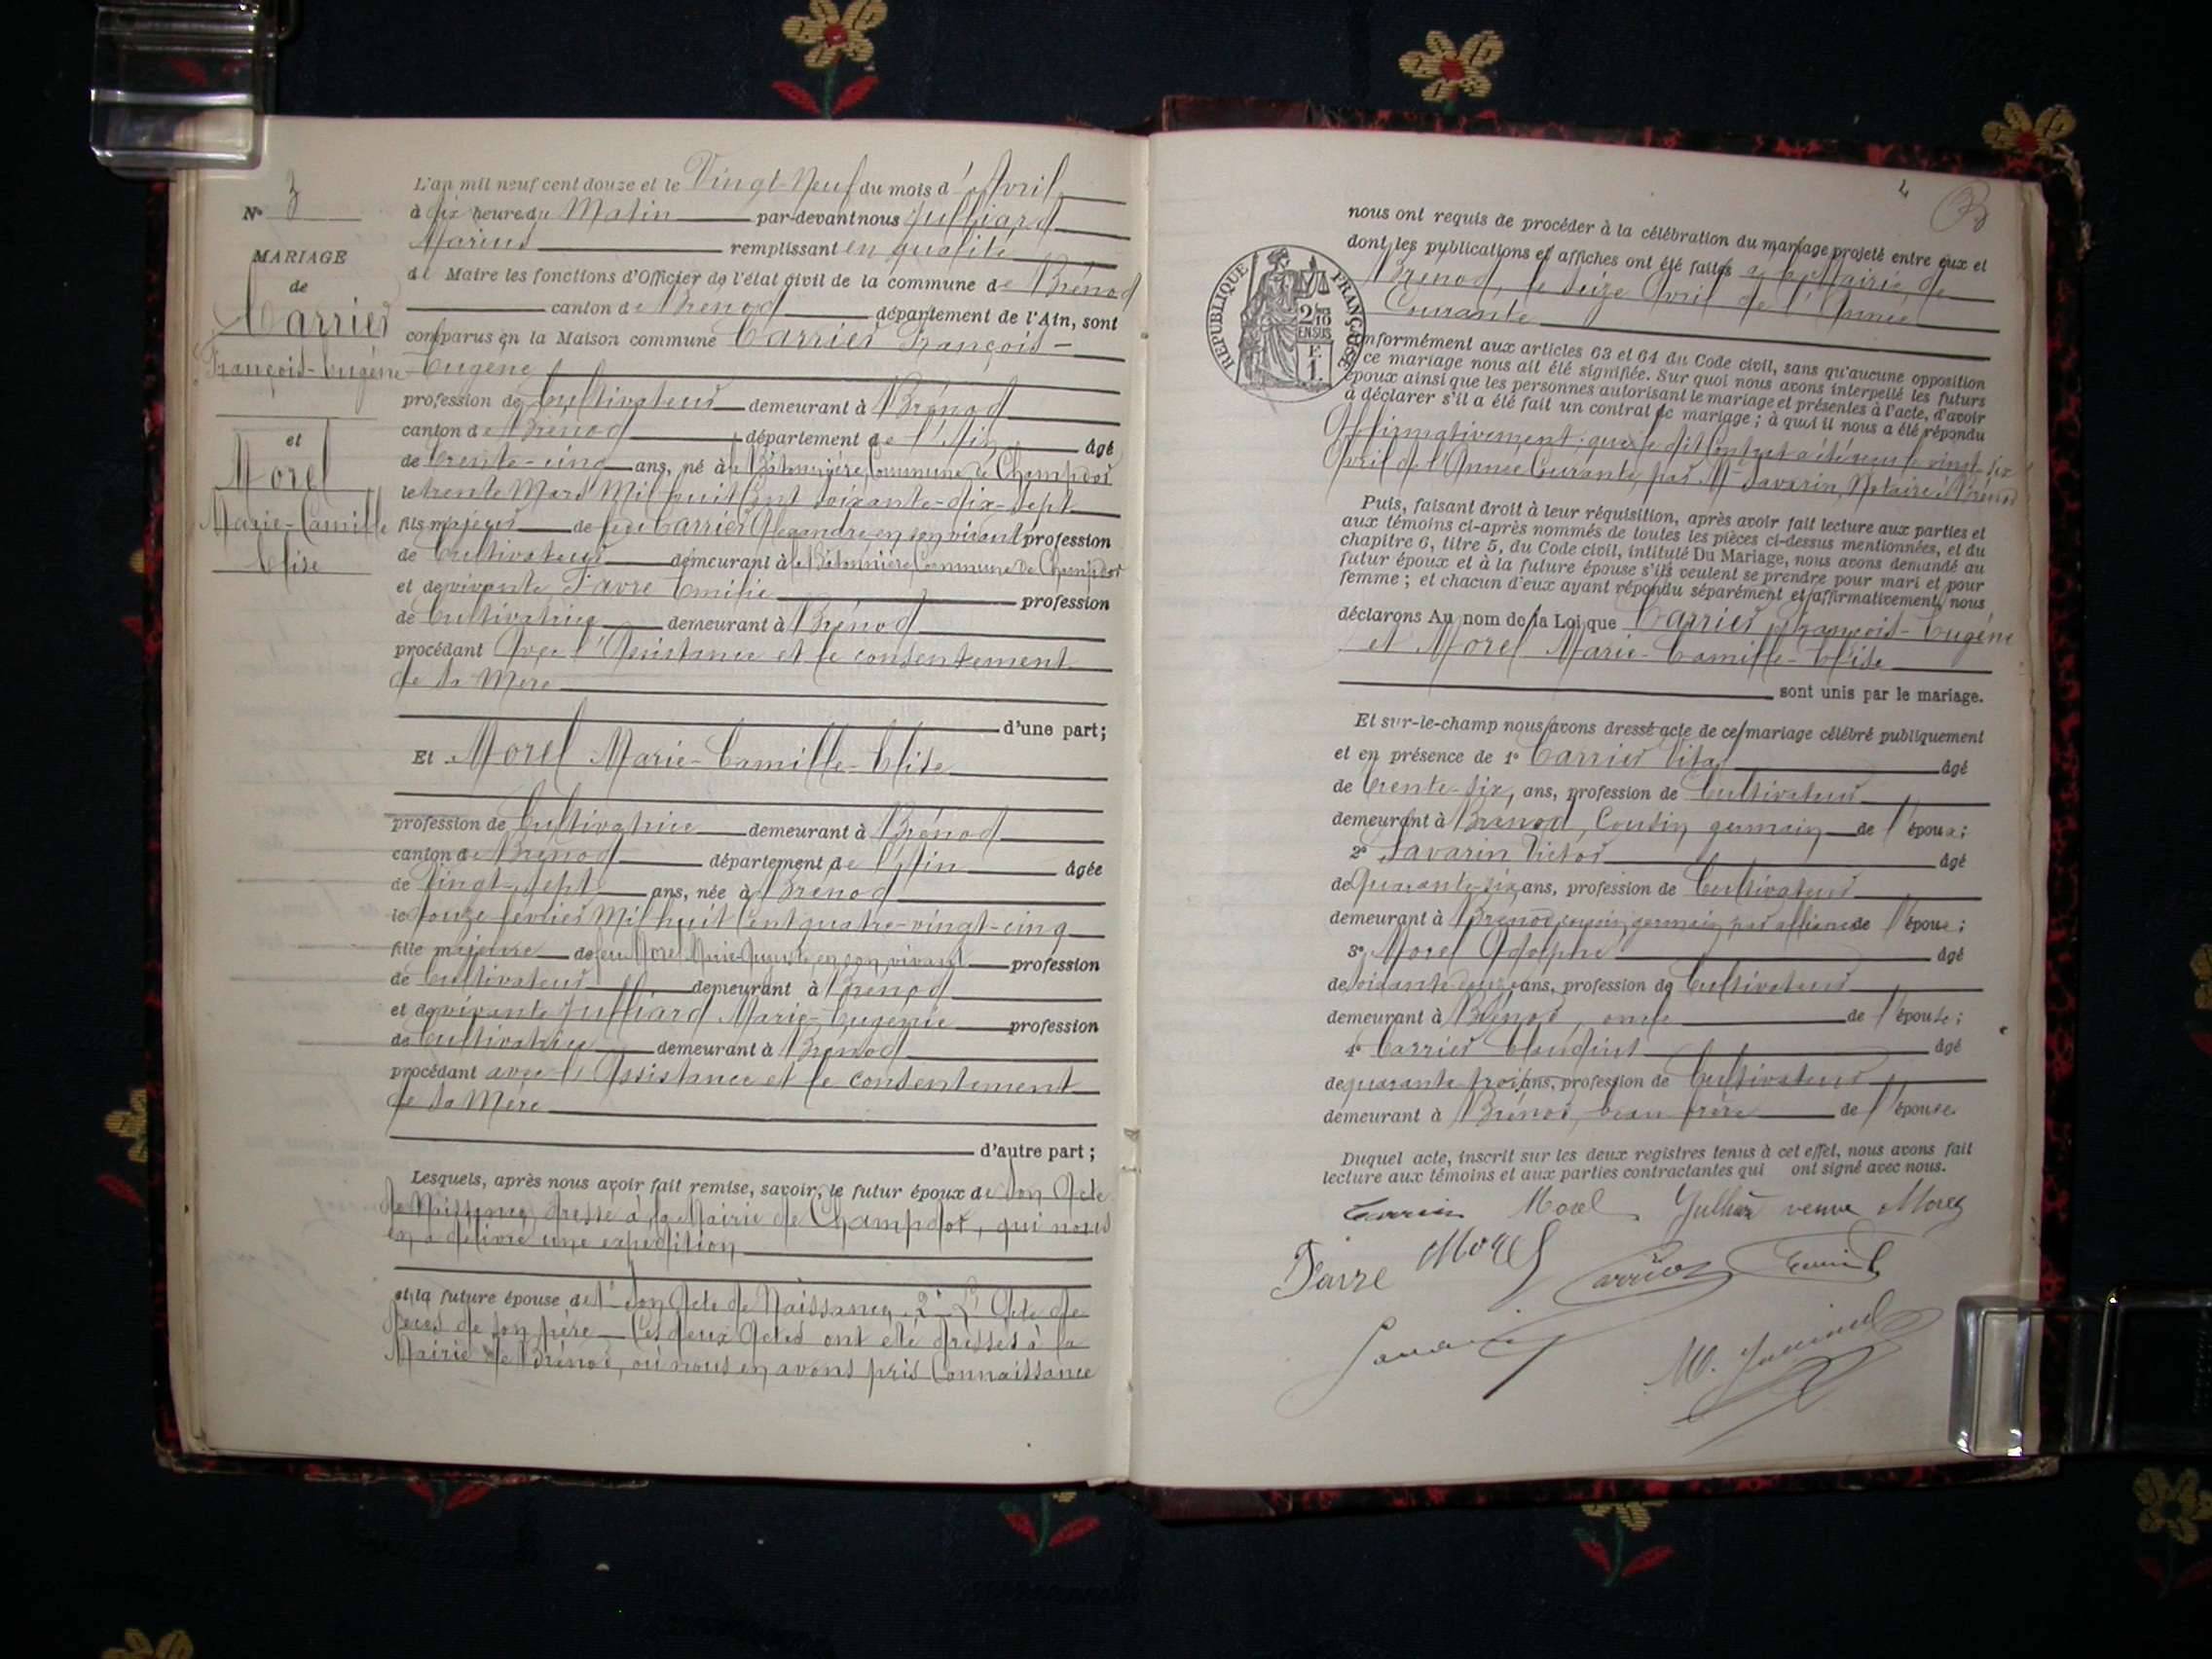 N° 3
MARIAGE
de
Carrier
François-Eugène
et
Morel
Marie-Camille
Elise
L'an mil neuf cent douze et le Vingt-Neuf du mois d'Avril
à dix heure du Matin par-devant nous Julliard
Marius remplissant en qualité
de Maire les fonctions d'Officier de l'état civil de la commune de Brénod
canton de Brénod département de l'Ain, sont
comparus en la Maison commune Carrier François-
Eugène
profession de Cultivateur demeurant à Brénod
canton de Brénod département de l'Ain âgé
de trente-cinq ans, né à la Commune de Champdor
le trente Mars Mil huit Cent soixante-dix-sept
fils majeur de feu Carrier Alexandre en son vivant profession
de Cultivateur demeurant à la Commune de Champdor
et de vivante Favre Emilie profession
de Cultivatrice demeurant à Brénod
procédant Avec l'Assistance et le consentement
de sa Mère
d'une part;
Et Morel Marie-Camille-Elise
profession de Cultivatrice demeurant à Brénod
canton de Brénod département de l'Ain âgée
de Vingt-Sept ans, née à Brénod
le douze février Mil huit Cent quatre-vingt-cinq
fille majeure de feu Morel Marie-Auguste, en son vivant profession
de Cultivateur demeurant à Brénod
et de vivante Julliard Marie-Eugénie profession
de Cultivatrice demeurant à Brénod
procédant avec l'Assistance et le consentement
de sa Mère
d'autre part;
Lesquels, après nous avoir fait remise, savoir, le futur époux de Son Acte
de Naissance dressé à la Mairie de Champdor, qui nous
en a délivré une expédition
et la future épouse de 1° Son Acte de Naissance, 2° L'Acte de
décès de son père Ces deux Actes ont été dressés à la
Mairie de Brénod, où nous en avons pris Connaissance
4
REPUBLIQUE FRANÇAISE
2/10
EN SUS
F
1
nous ont requis de procéder à la célébration du mariage projeté entre eux et
dont les publications et affiches ont été faites à la Mairie de
Brénod, le seize Avril de l'Année
Courante
Conformément aux articles 63 et 64 du Code civil, sans qu'aucune opposition
à ce mariage nous ait été signifiée. Sur quoi nous avons interpellé les futurs
époux ainsi que les personnes autorisant le mariage et présentes à l'acte, d'avoir
à déclarer s'il a été fait un contrat de mariage; à quoi il nous a été répondu
Affirmativement, que le dit Contrat a été reçu le vingt-six
Avril de l'Année Courante, par Me Savarin, Notaire à Brénod
Puis, faisant droit à leur réquisition, après avoir fait lecture aux parties et
aux témoins ci-après nommés de toutes les pièces ci-dessus mentionnées, et du
chapitre 6, titre 5, du Code civil, intitulé Du Mariage, nous avons demandé au
futur époux et à la future épouse s'ils veulent se prendre pour mari et pour
femme; et chacun d'eux ayant répondu séparément et affirmativement, nous
déclarons Au nom de la Loi que Carrier François-Eugène
et Morel Marie-Camille-Elise
sont unis par le mariage.
Et sur-le-champ nous avons dressé acte de ce mariage célébré publiquement
et en présence de 1° Carrier Vital âgé
de trente-six, ans, profession de Cultivateur
demeurant à Brénod, Cousin germain de l'époux;
2° Savarin Victor âgé
de Quarante-six ans, profession de Cultivateur
demeurant à Brénod, cousin germain par alliance de l'épouse;
3° Morel Adolphe âgé
de soixante ans, profession de Cultivateur
demeurant à Brénod, oncle de l'épouse;
4° Carrier Claudius âgé
de quarante trois ans, profession de Cultivateur
demeurant à Brénod, beau frère de l'épouse.
Duquel acte, inscrit sur les deux registres tenus à cet effet, nous avons fait
lecture aux témoins et aux parties contractantes qui ont signé avec nous.
Carrier Morel veuve Morel
Favre Morel Carrier